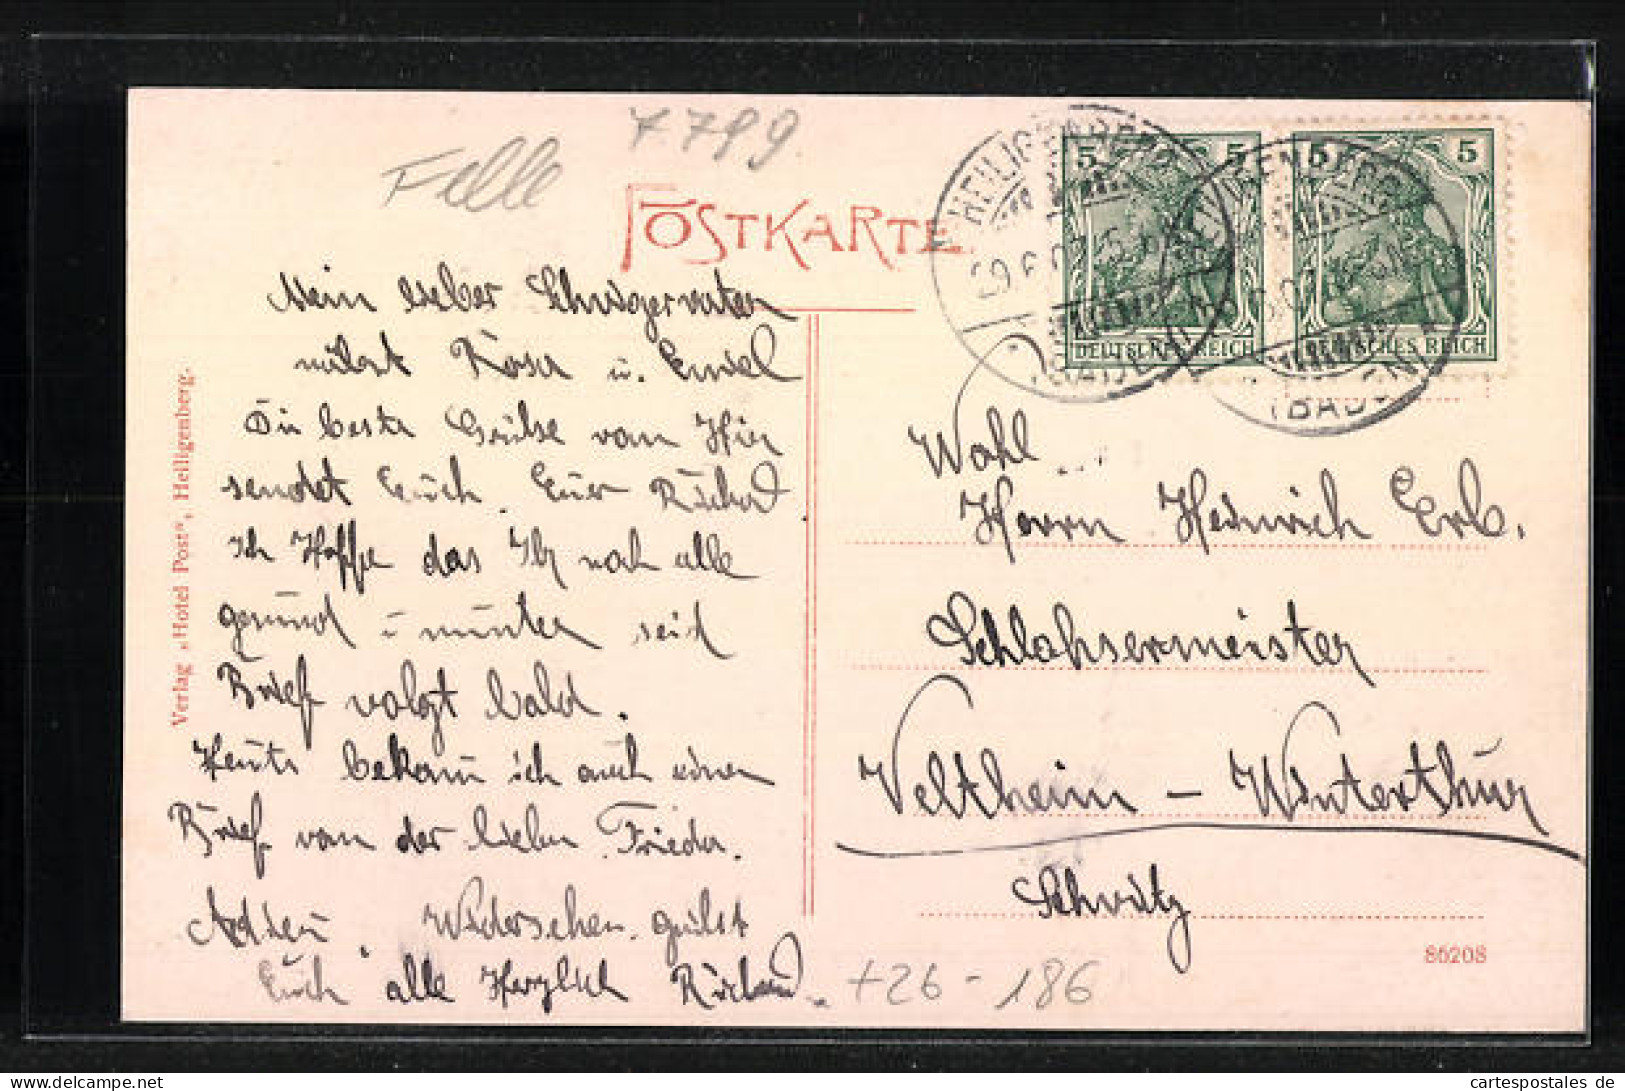 7799
Felle
POSTKARTE
HEILIGENBERG
29.6.07. 5-6N
(BADEN)
5 5
DEUTSCHES REICH
5 5
DEUTSCHES REICH
Mein lieber Schwigervater
näbst Rosa u. Emel
Die beste Grüße von Hier
sendet Euch. Euer Richard
Ich Hoffe das Ihr noch alle
gesund u munter seid
Brief volgt bald.
Heute bekam ich auch einen
Brief von der lieben Frieda.
Adieu Widersehen. grüßt
Euch alle Herzlich Richard
Wohl
Herrn Heinrich Erb.
Schlohsermeister
Veltheim – Winterthur
Schweitz
+26-186
85208
Verlag „Hotel Post“, Heiligenberg.
cartespostales de